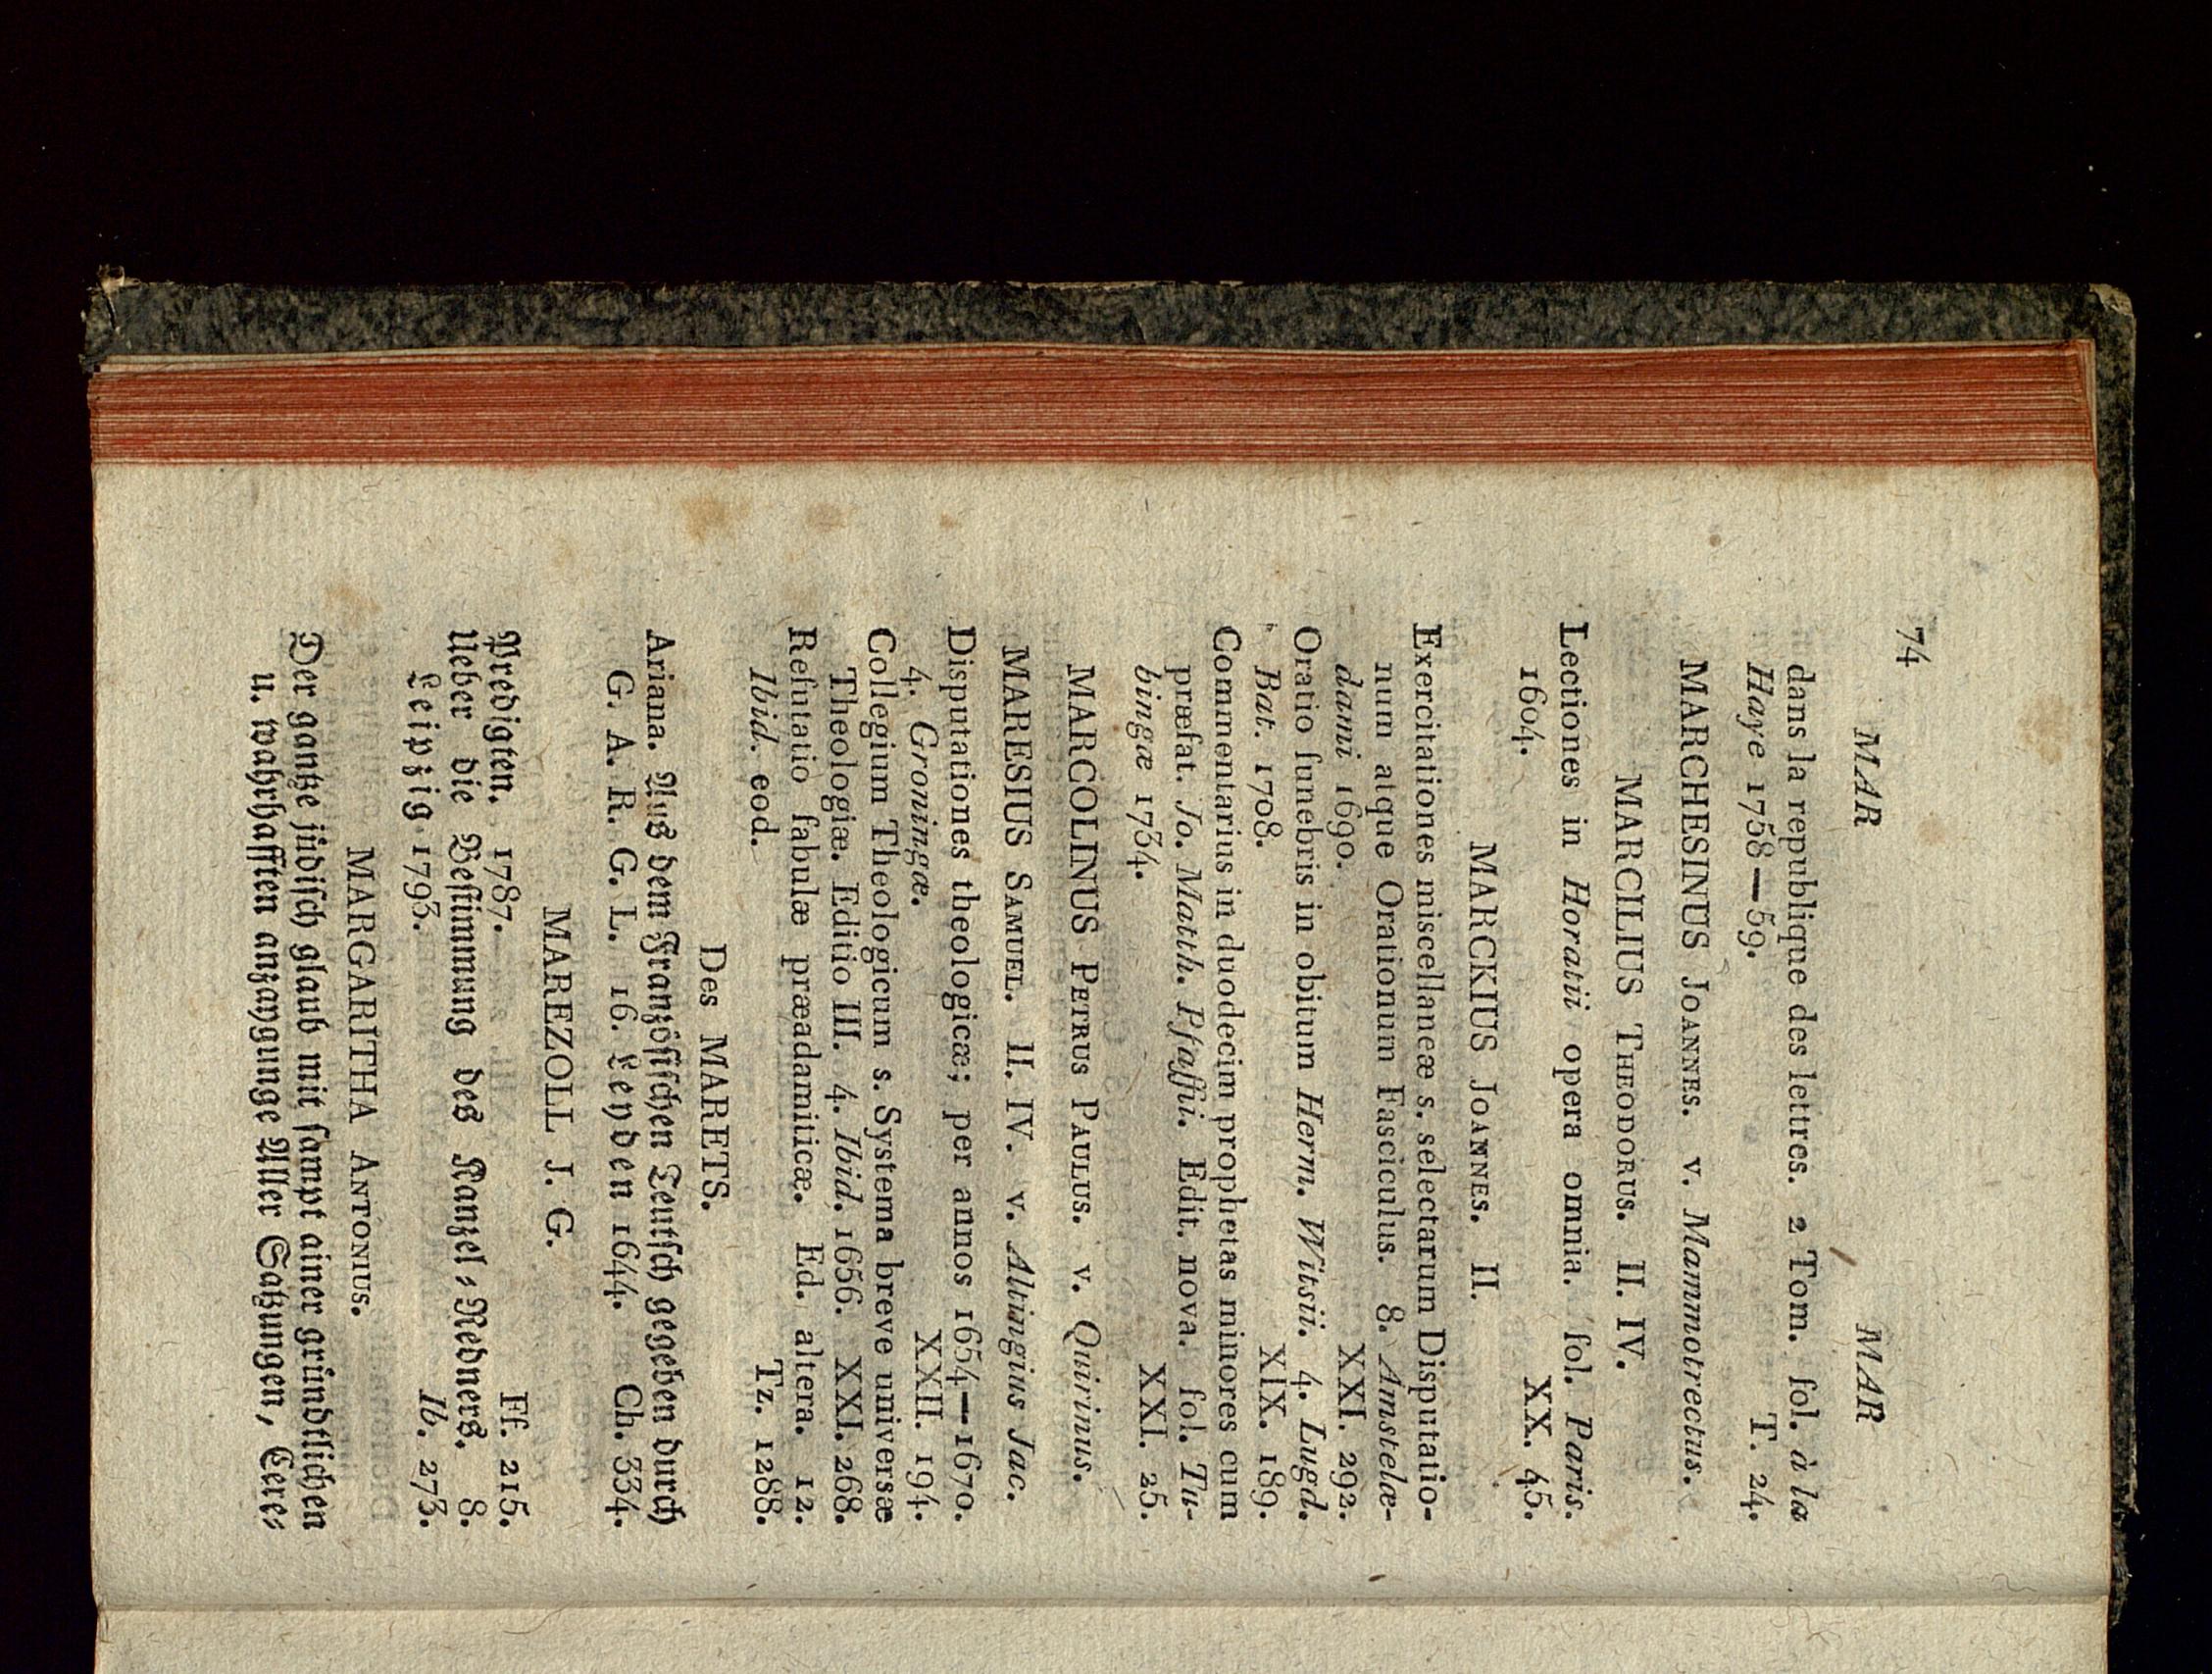 74
MAR MAR
dans la republique des lettres. 2 Tom. fol. à la
Haye 1758—59. T. 24.
MARCHESINUS JOANNES. v. Mammotrectus.
MARCILIUS THEODORUS. II. IV.
Lectiones in Horatii opera omnia. fol. Paris.
1604. XX. 45.
MARCKIUS JOANNES. II.
Exercitationes miscellaneæ s. selectarum Disputatio-
num atque Orationum Fasciculus. 8. Amstelæ-
dami 1690. XXI. 292.
Oratio funebris in obitum Herm. Witsii. 4. Lugd.
Bat. 1708. XIX. 189.
Commentarius in duodecim prophetas minores cum
præfat. Jo. Matth. Pfaffii. Edit. nova. fol. Tu-
bingæ 1734. XXI. 25.
MARCOLINUS PETRUS PAULUS. v. Quirinus.
MARESIUS SAMUEL. II. IV. v. Altingius Jac.
Disputationes theologicæ; per annos 1654—1670.
4. Groningæ. XXII. 194.
Collegium Theologicum s. Systema breve universæ
Theologiæ. Editio III. 4. Ibid. 1656. XXI. 268.
Refutatio fabulæ præadamiticæ. Ed. altera. 12.
Ibid. eod. Tz. 1288.
Des MARETS.
Ariana. Aus dem Franzößischen Teutsch gegeben durch
G. A. R. G. L. 16. Leyden 1644. Ch. 334.
MAREZOLL J. G.
Predigten. 1787. Ff. 215.
Ueber die Bestimmung des Kanzel-Redners. 8.
Leipzig 1793. Ib. 273.
MARGARITHA ANTONIUS.
Der gantze jüdisch glaub mit sampt ainer gründtlichen
u. warhafften anzaygunge Aller Satzungen, Cere-